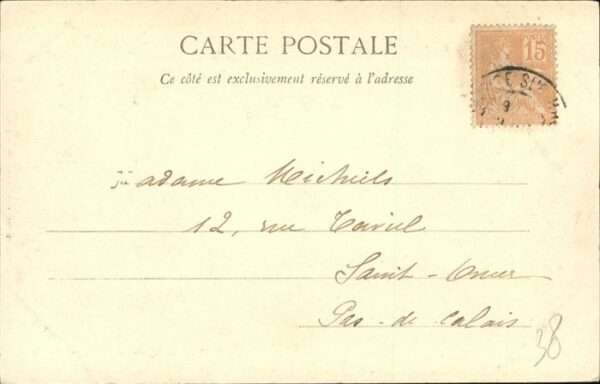 CARTE POSTALE
Ce côté est exclusivement réservé à l'adresse
15
9
Madame Michiels
12, rue
Saint-Omer
Pas-de Calais
38